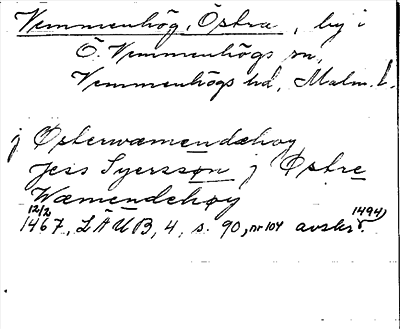 Vemmenhög, Östra, by i
Ö. Vemmenhögs sn,
Vemmenhögs hd, Malm. l.
j Østerwæmendæhøy
Jess Syersson j Østre
Wæmendehøy
12/2 1494)
1467, LÄUB, 4, s. 90, nr 104 avskr.